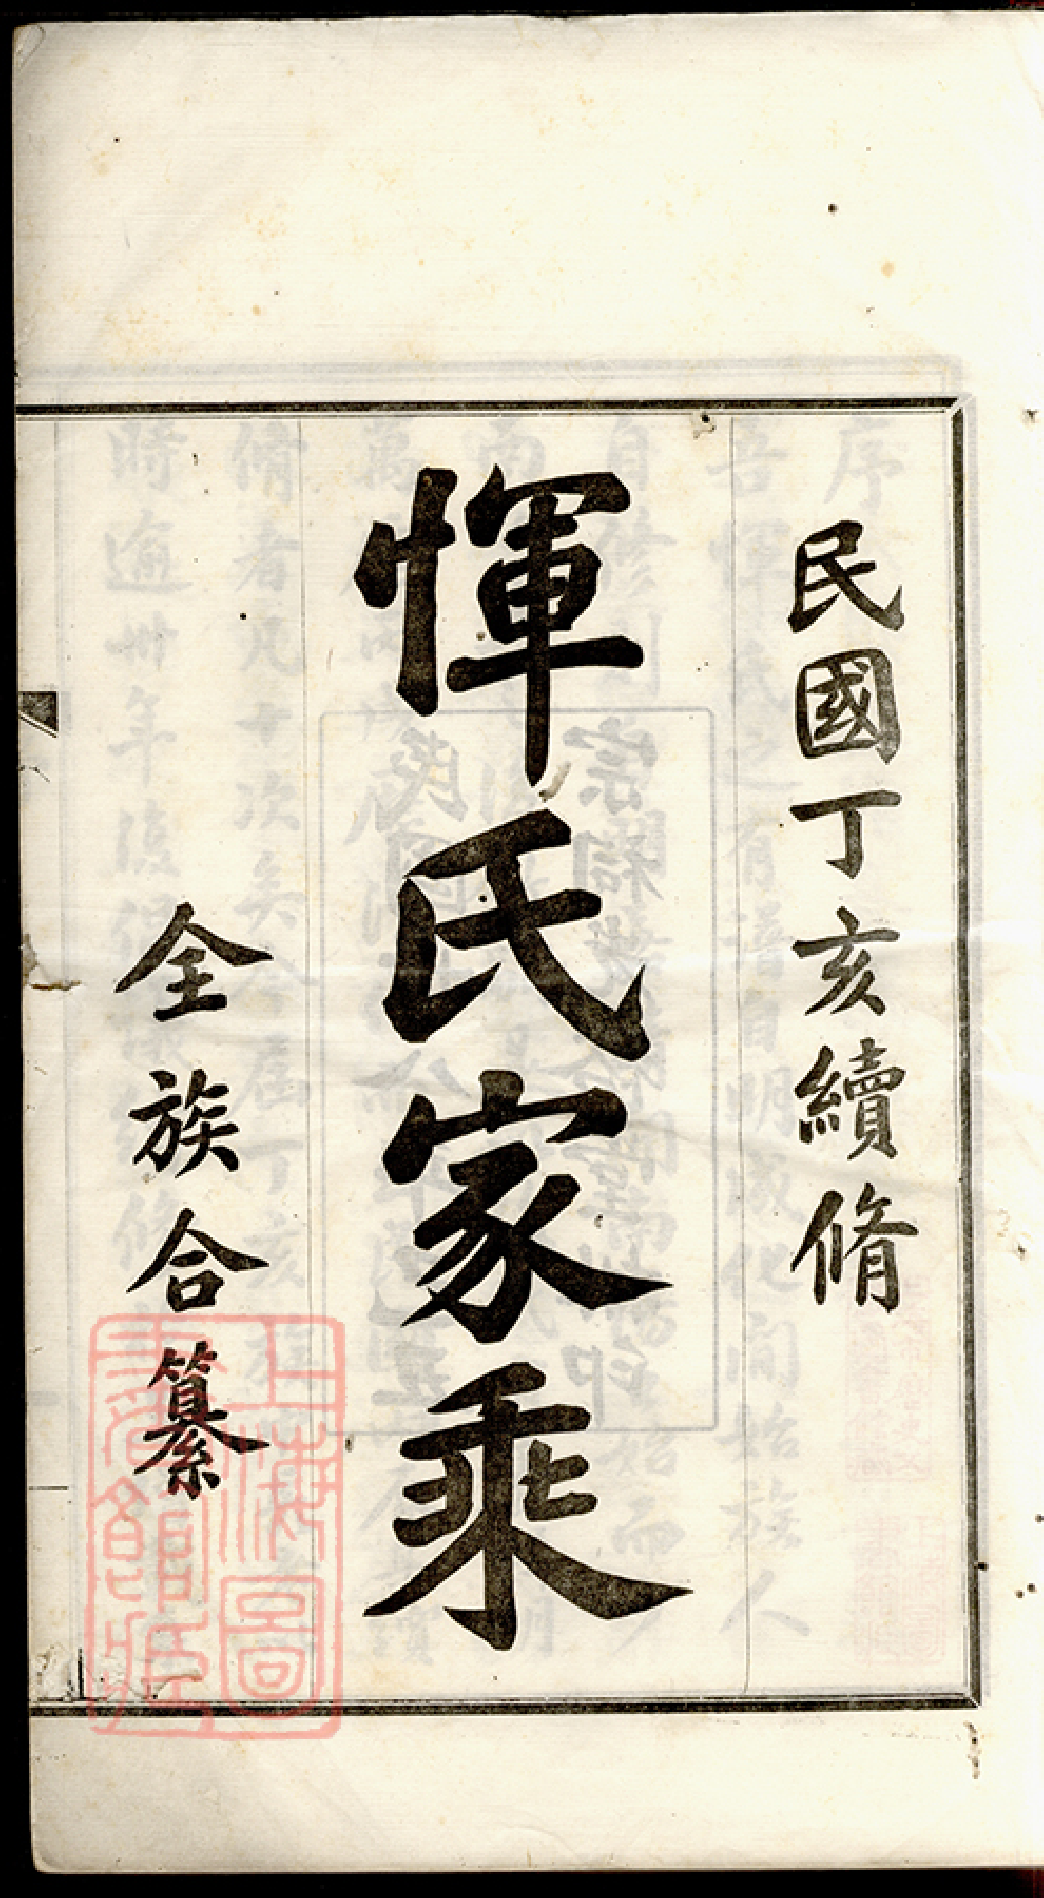 民國丁亥續脩
惲氏家乘
全族合纂
上海圖書館藏